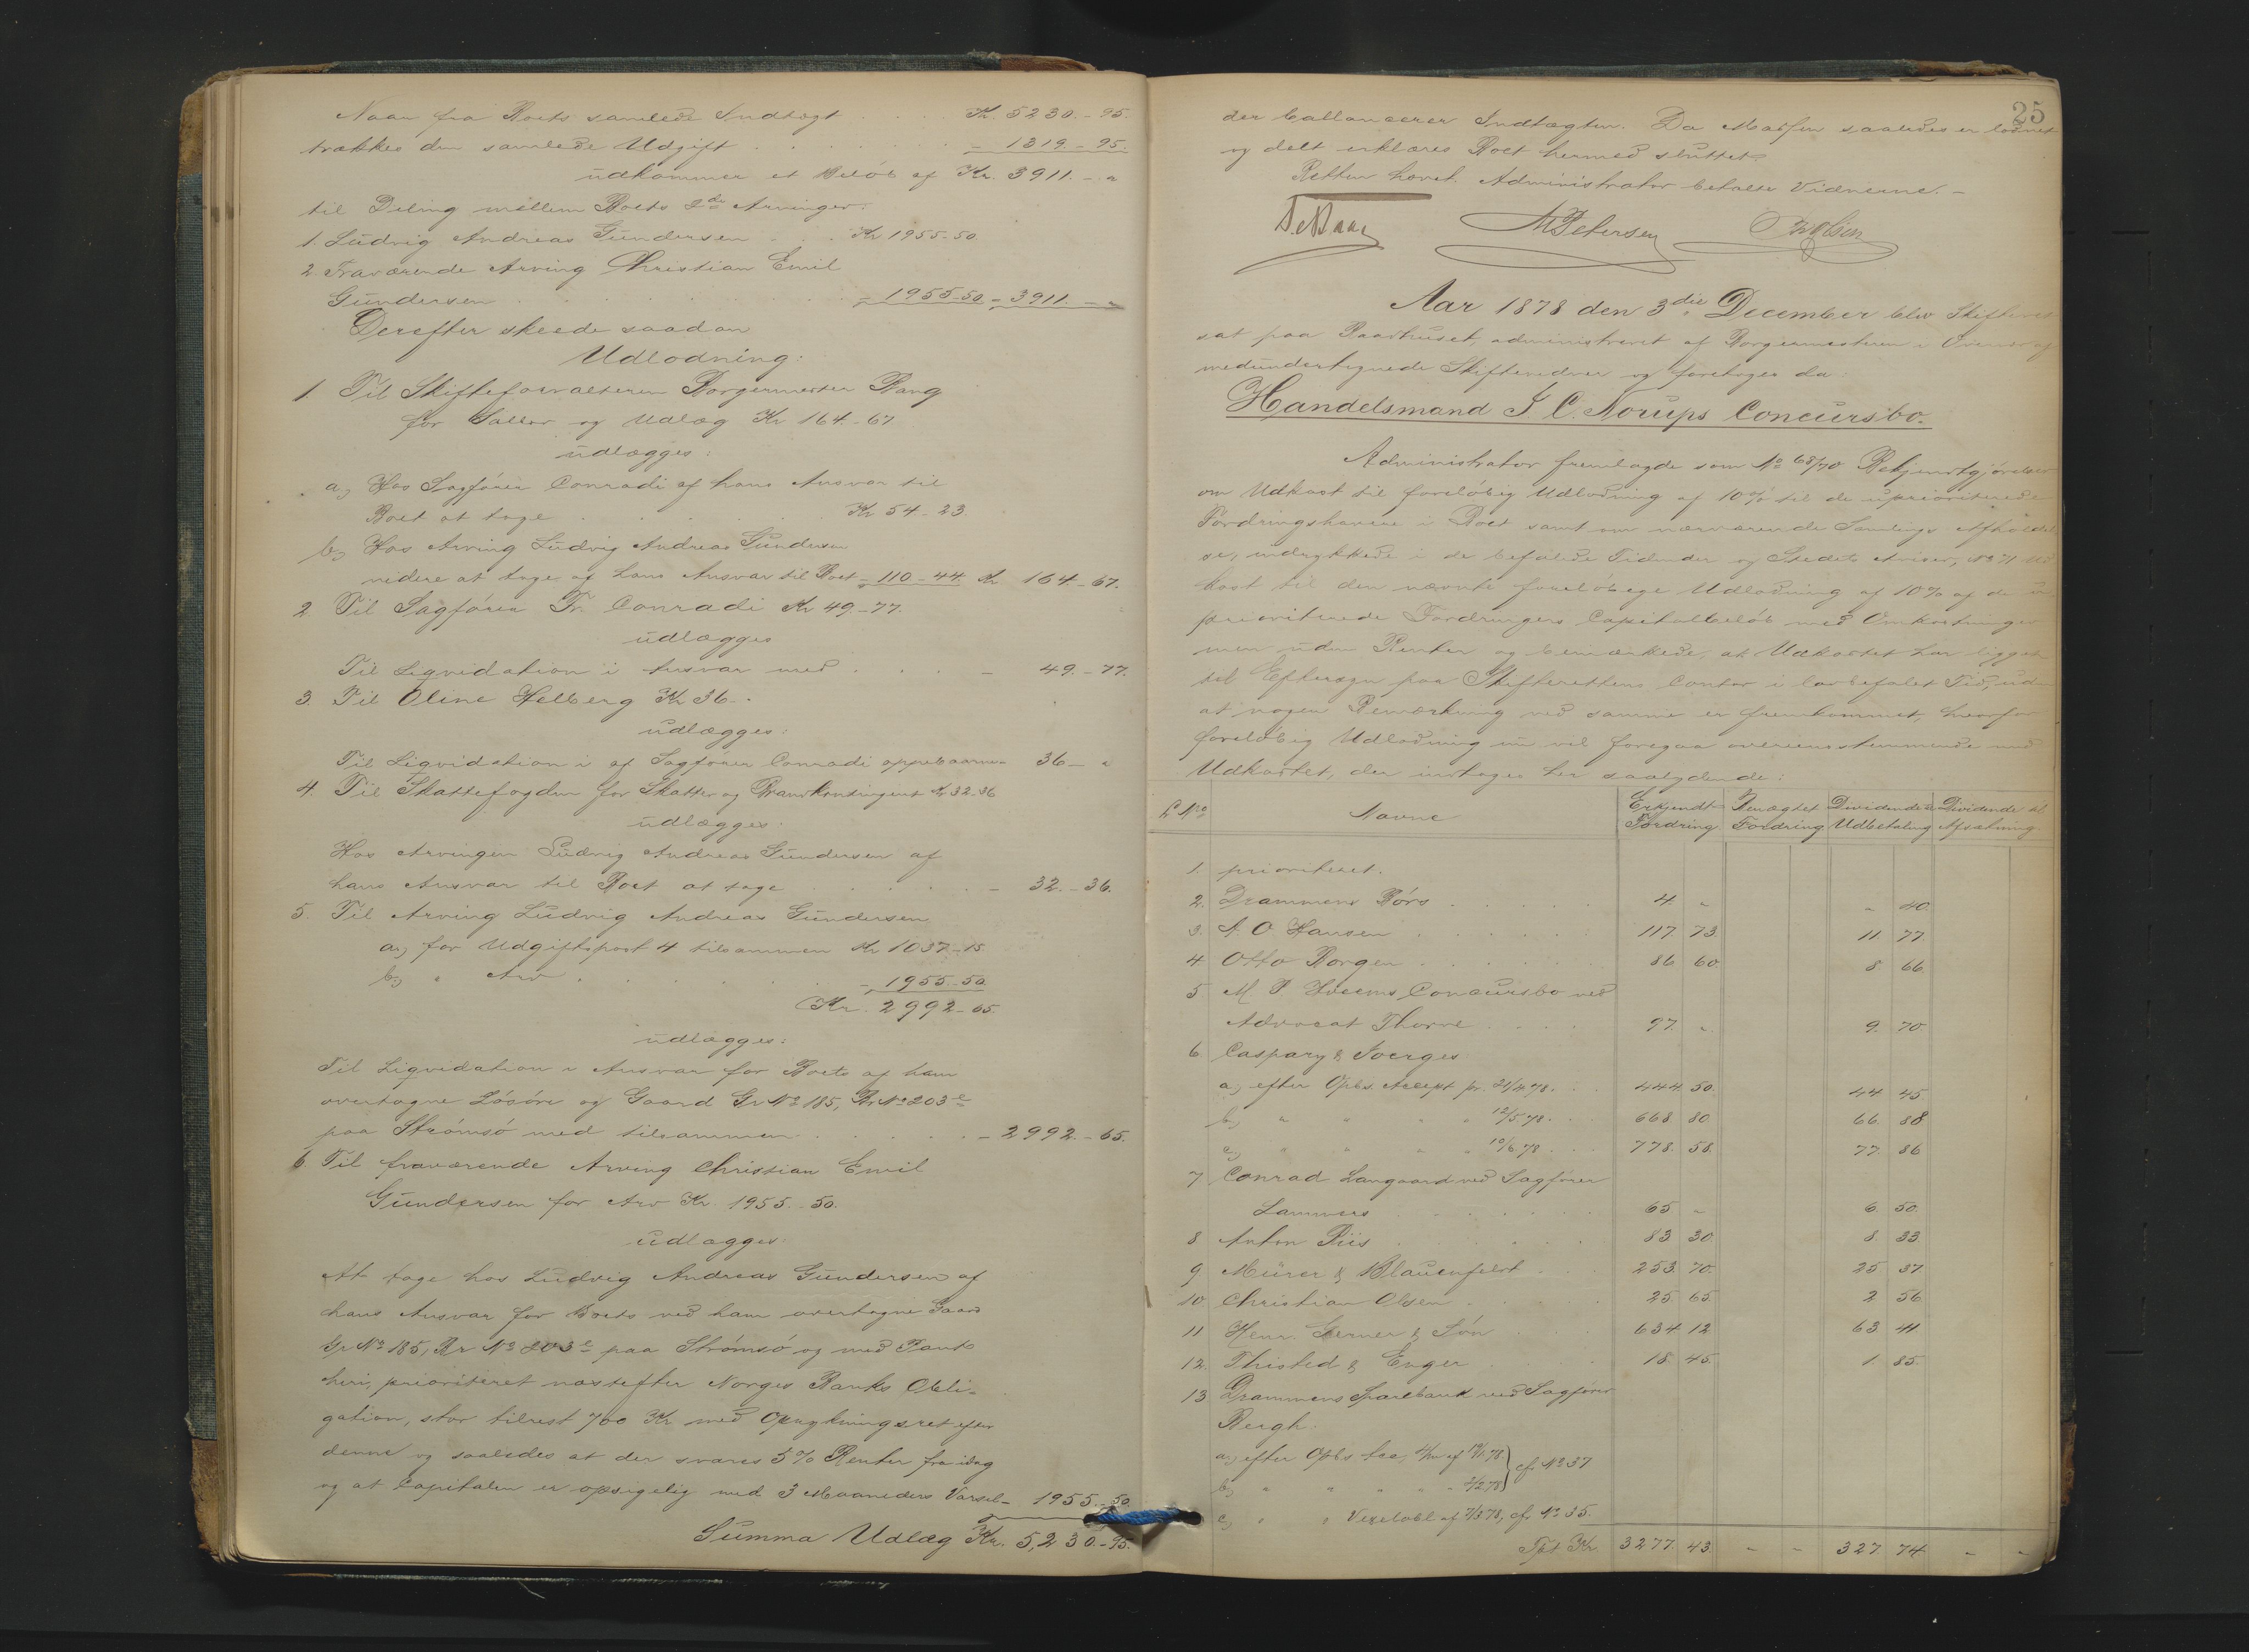 Naar fra Boets samlede Indtægt . . . Kr. 5230.-95.
trækkes den samlede Udgift . . . . . . - 1319.-95.
udkommer et Beløb af Kr. 3911.-"
til Deling mellem Boets 2de Arvinger:
1. Ludvig Andreas Gundersen . . . Kr 1955-50.
2. Fraværende Arving Christian Emil
Gundersen . . . . . . . - 1955-50 - 3911.-"
Derefter skeede saadan
Udlodning:
1 Til Skifteforvalteren Borgermester Bang
for Sallær og Udlæg Kr 164.-67
udlægges:
a, Hos Sagfører Conradi af hans Ansvar til
Boet at tage . . . . . . Kr 54-23
b, Hos Arving Ludvig Andreas Gundersen
videre at tage af hans Ansvar til Boet - 110-44. Kr 164.-67.
2 Til Sagfører Fr. Conradi Kr 49.-77.
udlægges
Til Liqvidation i Ansvar med . . . - 49.-77.
3. Til Oline Helberg Kr 36-.
udlægges:
Til Liqvidation i af Sagfører Conradi oppebaarne - 36-"
4. Til Skattefogden for Skatter og Brandkontingent Kr 32-36
udlægges:
Hos Arvingen Ludvig Andreas Gundersen af
hans Ansvar til Boet at tage . . . . . - 32.-36.
5. Til Arving Ludvig Andreas Gundersen
a, for Udgiftspost 4 tilsammen Kr 1037-15
b, " Arv . . . . . . - 1955-50
Kr. 2992-65.
udlægges:
Til Liqvidation i Ansvar for Boets af ham
overtagne Løsøre og Gaard Gr No 185, Br. No 203 c
paa Strømsø med tilsammen . . . . . - 2992.-65.
6. Til fraværende Arving Christian Emil
Gundersen for Arv Kr. 1955.-50.
udlægges:
At tage hos Ludvig Andreas Gundersen af
hans Ansvar for Boets ved ham overtagne Gaard
Gr No 185, Br No 203 c paa Strømsø og med Pant
heri, prioriteret næstefter Norges Banks Obli-
gation, stor tilrest 700 Kr med Oprykningsret efter
denne og saaledes at der svares 5% Renter fra idag
og at Capitalen er opsigelig med 3 Maaneders Varsel - 1955.-50.
Summa Udlæg Kr. 5,230.-95.
25
der ballancerer Indtægten. Da Massen saaledes er loddet
og delt erklæres Boet hermed sluttet.
Retten hævet. Administrator betalte Vidnerne.-
M Petersen
Aar 1878 den 3die December blev Skifteret
sat paa Raadhuset, administreret af Borgermesteren i Overvær af
medundertegnede Skiftevidner og foretoges da:
Handelsmand J. C. Norups Concursbo.
Administrator fremlagde som No 68/70 Bekjendtgjørelser
om Udkast til foreløbig Udlodning af 10% til de uprioriterede
Fordringshavere i Boet samt om nærværende Samlings Afholdel-
se, indrykkede i de befalede Tidender og Stedets Aviser, No 71 Ud-
kast til den nævnte foreløbige Udlodning af 10% af de u-
prioriterede Fordringers Capitalbeløb med Omkostninger
men uden Renter og bemærkede, at Udkastet har ligget
til Eftersyn paa Skifterettens Contor i lovbefalet Tid, uden
at nogen Bemærkning ved samme er fremkommet, hvorfor
foreløbig Udlodning nu vil foregaa overensstemmende med
Udkastet, der indtages her saalydende:
L No Navne Erkjendt Fordring Benægtet Fordring Dividende til Udbetaling Dividende til Afsætning.
1. prioriteret.
2. Drammens Børs . . . . 4. " " 40.
3. A. O. Hansen . . . . . 117. 73. 11 77.
4 Otto Borgen . . . . . 86 60. 8 66.
5 M. P. Concursbo ved
Advocat Thorne . . . . 97. " 9. 70.
6 Caspary & Joerges
a, efter Opbs. Accept pr. 21/4 78. . . 444. 50. 44 45
b, " " " " 12/5 78. . . 668 80 66. 88
c, " " " " 10/6 78 . . . 778. 58. 77. 86
7 Conrad Langaard ved Sagfører
Lammers . . . . . 65 " 6. 50.
8 Anton Riis . . . . 83 30. 8. 33.
9 Mürer & Blauenfeldt . . . 253. 70. 25 37.
10. Christian Olsen . . . . 25 65. 2 56
11 Henr. Gerner & Søn . . . 634 12 63 41
12. Thisted & Enger . . . . 18. 45. 1. 85.
13 Drammens Sparebank ved Sagfører
Bergh.
a, efter Opbs cf. No 37
b, " " " " 2/2 78
c, " " Vexelobl af 7/3 78, cf. No 35.
Tpt Kr. 3277. 43. - - 327. 74. - -